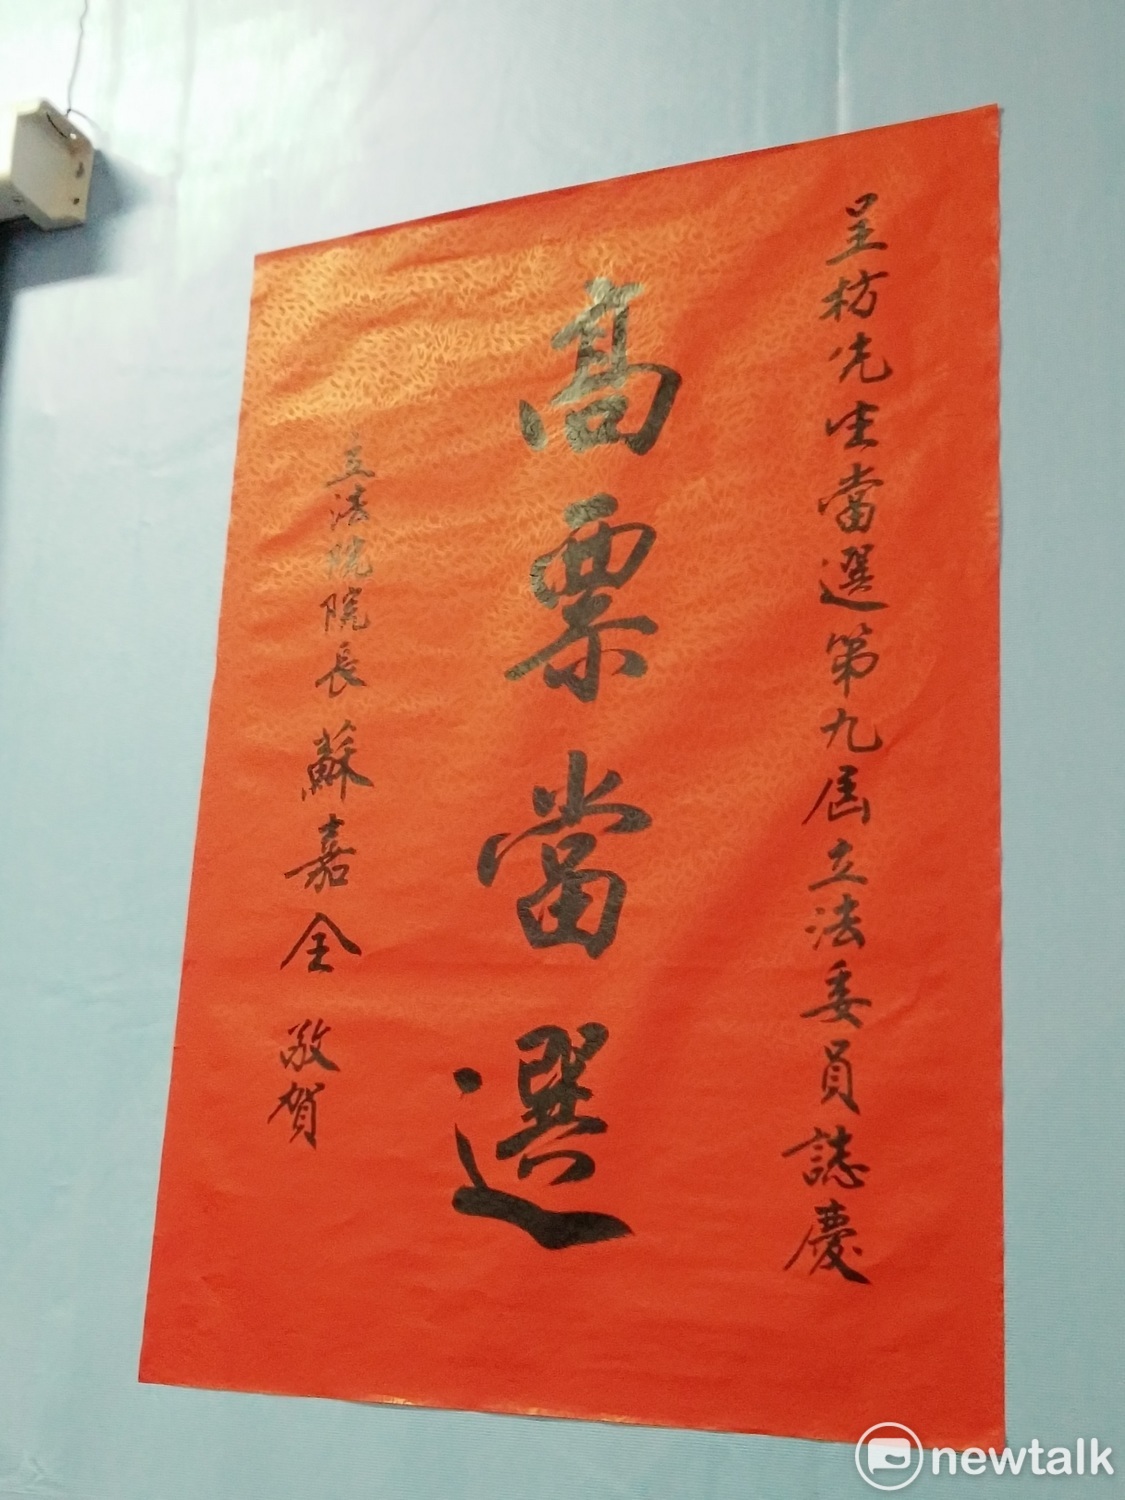 呈枋先生當選第九屆立法委員誌慶
高票當選
立法院院長蘇嘉全 敬賀
newtalk